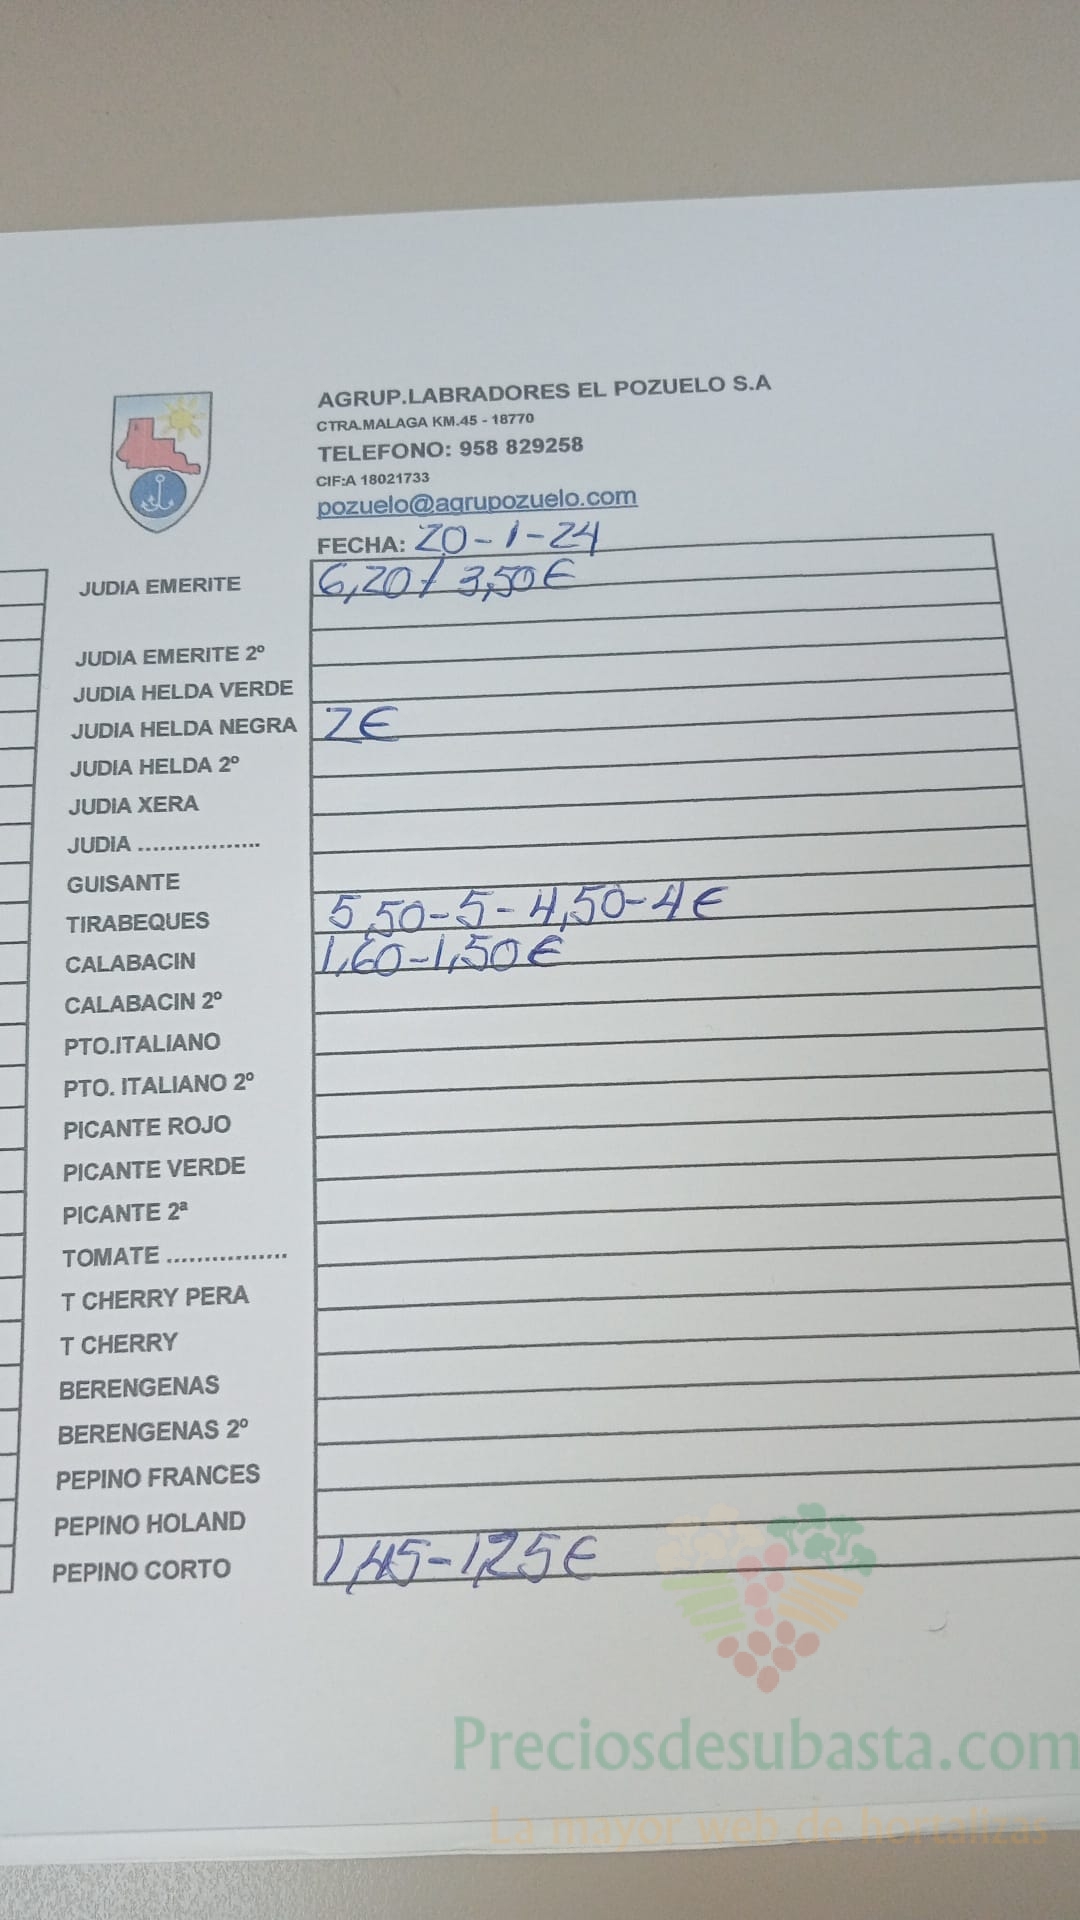 AGRUP.LABRADORES EL POZUELO S.A
CTRA.MALAGA KM.45 - 18770
TELEFONO: 958 829258
CIF:A 18021733
pozuelo@agrupozuelo.com
FECHA: 20-1-24
JUDIA EMERITE 6,20 / 3,50€
JUDIA EMERITE 2º
JUDIA HELDA VERDE
JUDIA HELDA NEGRA 2€
JUDIA HELDA 2º
JUDIA XERA
JUDIA .................
GUISANTE
TIRABEQUES 5,50-5-4,50-4€
CALABACIN 1,60-1,50€
CALABACIN 2º
PTO.ITALIANO
PTO. ITALIANO 2º
PICANTE ROJO
PICANTE VERDE
PICANTE 2ª
TOMATE .................
T CHERRY PERA
T CHERRY
BERENGENAS
BERENGENAS 2º
PEPINO FRANCES
PEPINO HOLAND
PEPINO CORTO 1,45-1,25€
Preciosdesubasta.com
La mayor web de hortalizas